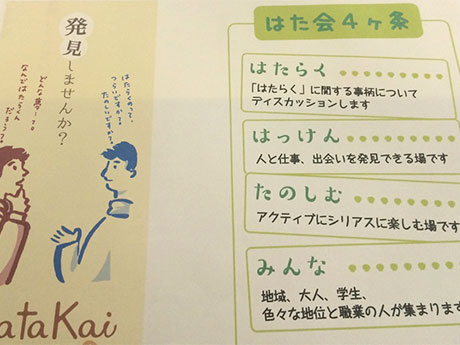 発見しませんか?
はたらくのって、
つらいですか?
たのしいですか?
なんではたらくん
だろう?
ataKai
はた会4ヶ条
はたらく
「はたらく」に関する事柄について
ディスカッションします
はっけん
人と仕事、出会いを発見できる場です
たのしむ
アクティブにシリアスに楽しむ場です
みんな
地域、大人、学生、
色々な地位と職業の人が集まります